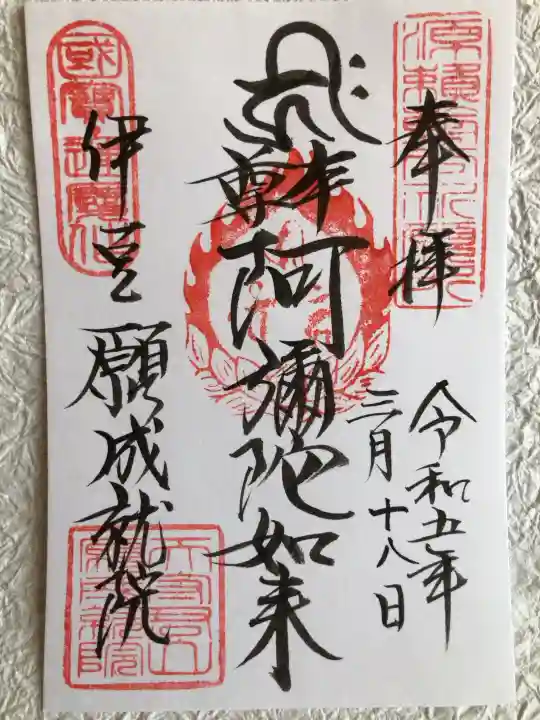 奉拝
令和五年
三月十八日
本尊
阿彌陀如来
伊豆
願成就院